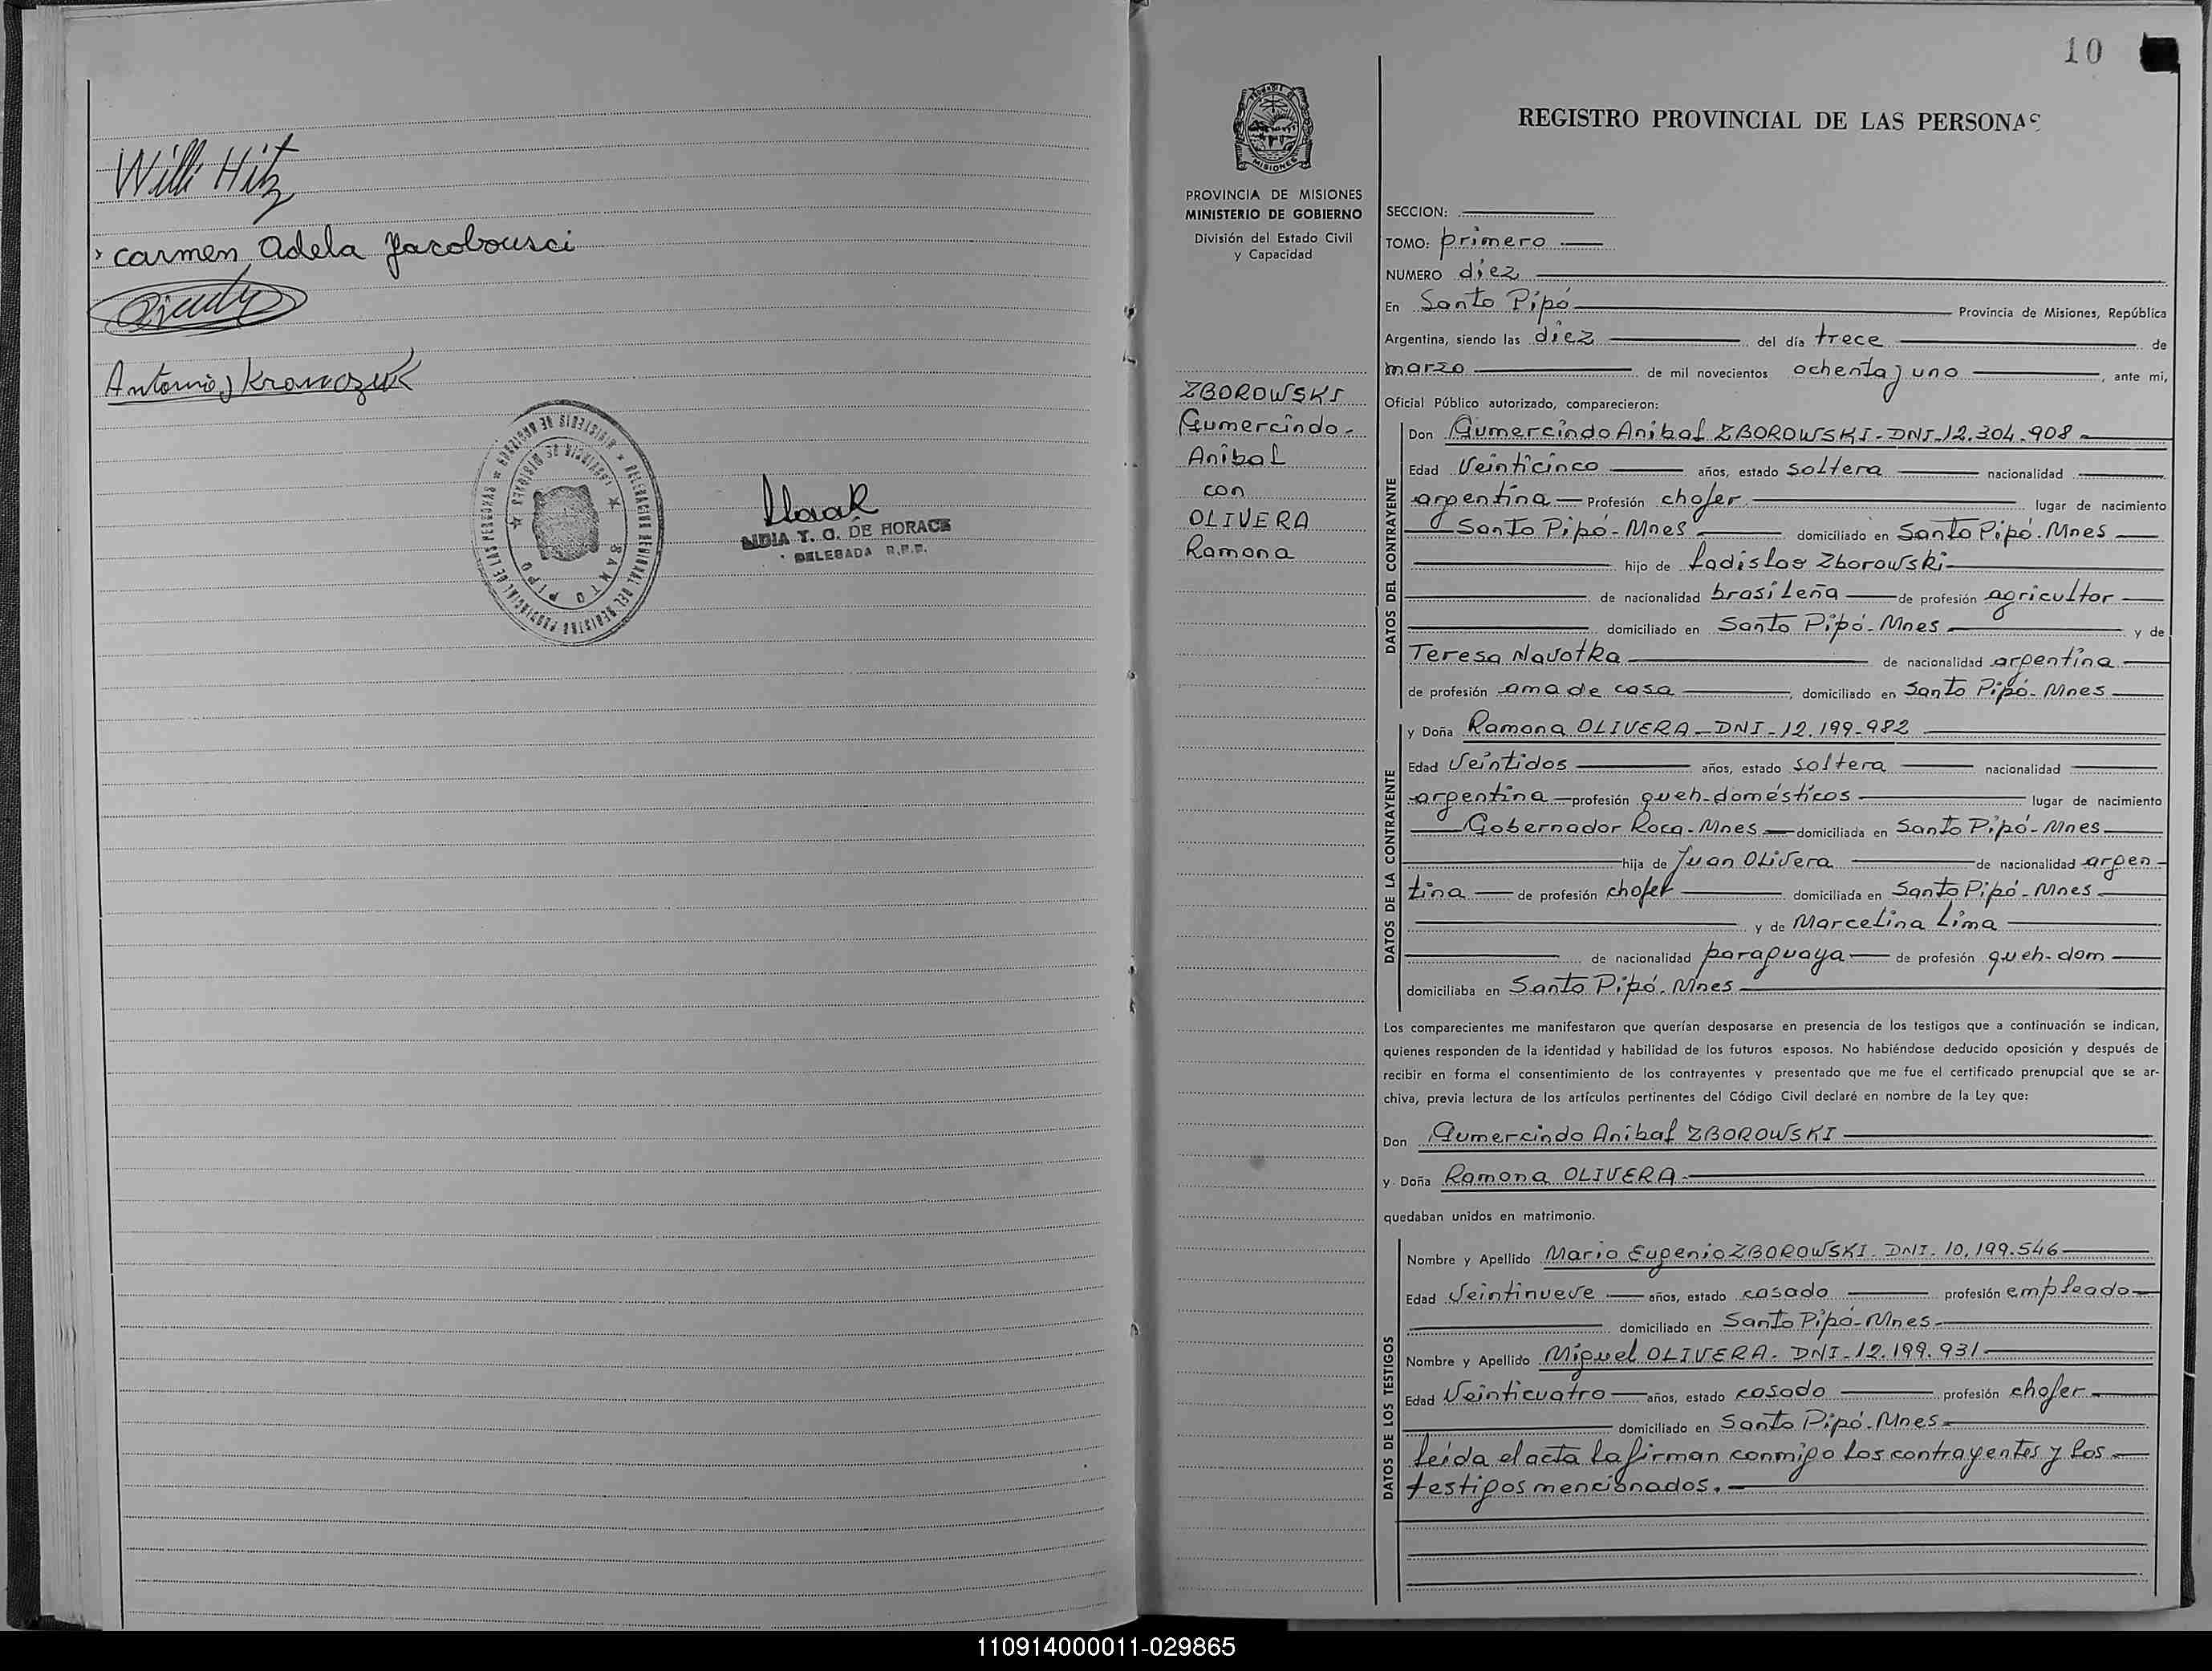 Willi Hitz
Carmen Adela Jacobousci
Antonio J Krawczuk
LIDIA T. O. DE HORACK
DELEGADA R.P.P.
DELEGACION REGIONAL DEL REGISTRO PROVINCIAL DE LAS PERSONAS
PROVINCIA DE MISIONES
SANTO PIPO
10
MISIONES
PROVINCIA DE MISIONES
MINISTERIO DE GOBIERNO
División del Estado Civil
y Capacidad
ZBOROWSKI
Gumercindo-
Anibal
con
OLIVERA
Ramona
REGISTRO PROVINCIAL DE LAS PERSONAS
SECCION:
TOMO: primero
NUMERO diez
En Santo Pipó Provincia de Misiones, República
Argentina, siendo las diez del día trece de
marzo de mil novecientos ochenta y uno, ante mi,
Oficial Público autorizado, comparecieron:
DATOS DEL CONTRAYENTE
Don Gumercindo Anibal ZBOROWSKI-DNI-12.304.908-
Edad Veinticinco años, estado soltera nacionalidad
argentina Profesión chofer lugar de nacimiento
Santo Pipó-Mnes domiciliado en Santo Pipó-Mnes
hijo de Ladislao Zborowski
de nacionalidad brasileña de profesión agricultor
domiciliado en Santo Pipó-Mnes y de
Teresa Navotka de nacionalidad argentina
de profesión ama de casa, domiciliado en Santo Pipó-Mnes
DATOS DE LA CONTRAYENTE
y Doña Ramona OLIVERA-DNI-12.199-982
Edad Veintidos años, estado soltera nacionalidad
argentina profesión queh-domésticos lugar de nacimiento
Gobernador Roca-Mnes domiciliada en Santo Pipó-Mnes
hija de Juan Olivera de nacionalidad argen-
tina de profesión chofer domiciliada en Santo Pipó-Mnes
y de Marcelina Lima
de nacionalidad paraguaya de profesión queh-dom
domiciliaba en Santo Pipó-Mnes
Los comparecientes me manifestaron que querían desposarse en presencia de los testigos que a continuación se indican,
quienes responden de la identidad y habilidad de los futuros esposos. No habiéndose deducido oposición y después de
recibir en forma el consentimiento de los contrayentes y presentado que me fue el certificado prenupcial que se ar-
chiva, previa lectura de los artículos pertinentes del Código Civil declaré en nombre de la Ley que:
Don Gumercindo Anibal ZBOROWSKI
y Doña Ramona OLIVERA-
quedaban unidos en matrimonio.
DATOS DE LOS TESTIGOS
Nombre y Apellido Mario Eugenio ZBOROWSKI-DNI-10.199.546
Edad Veintinueve años, estado casado profesión empleado
domiciliado en Santo Pipó-Mnes
Nombre y Apellido Miguel OLIVERA-DNI-12.199.931
Edad Veinticuatro años, estado casado profesión chofer
domiciliado en Santo Pipó-Mnes
Leída el acta la firman conmigo los contrayentes y los
testigos mencionados.
110914000011-029865